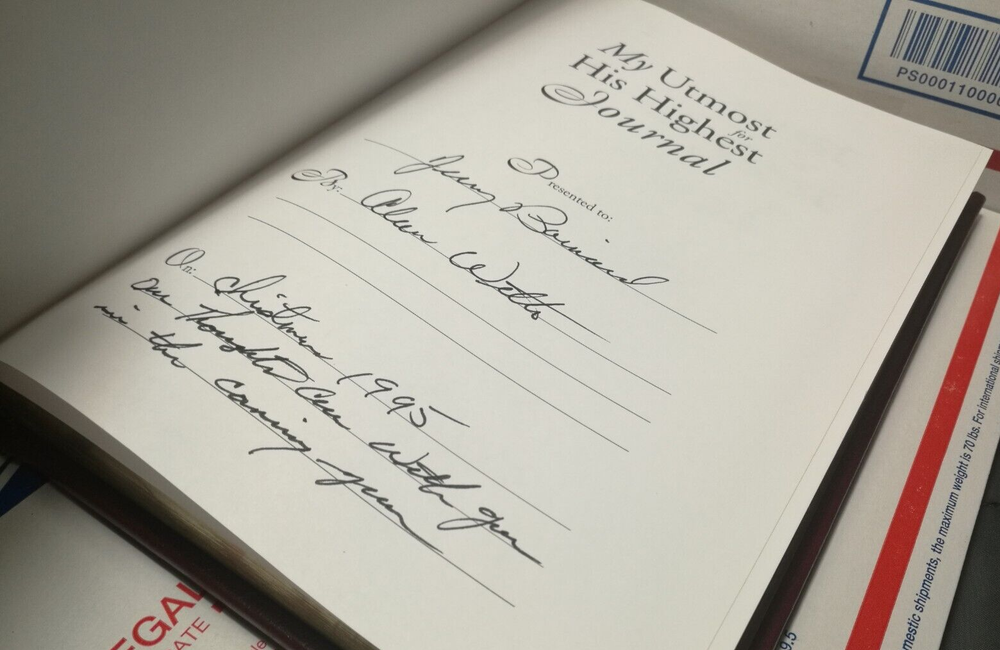 My Utmost
for
His Highest
Journal
Presented to:
Jerry Bainard
By: Alan Witto
On: Christmas 1995
Our Thoughts are with you
in the coming year
PS00011000
EGAL
ATE
mestic shipments, the maximum weight is 70 lbs. For international ship
9.5